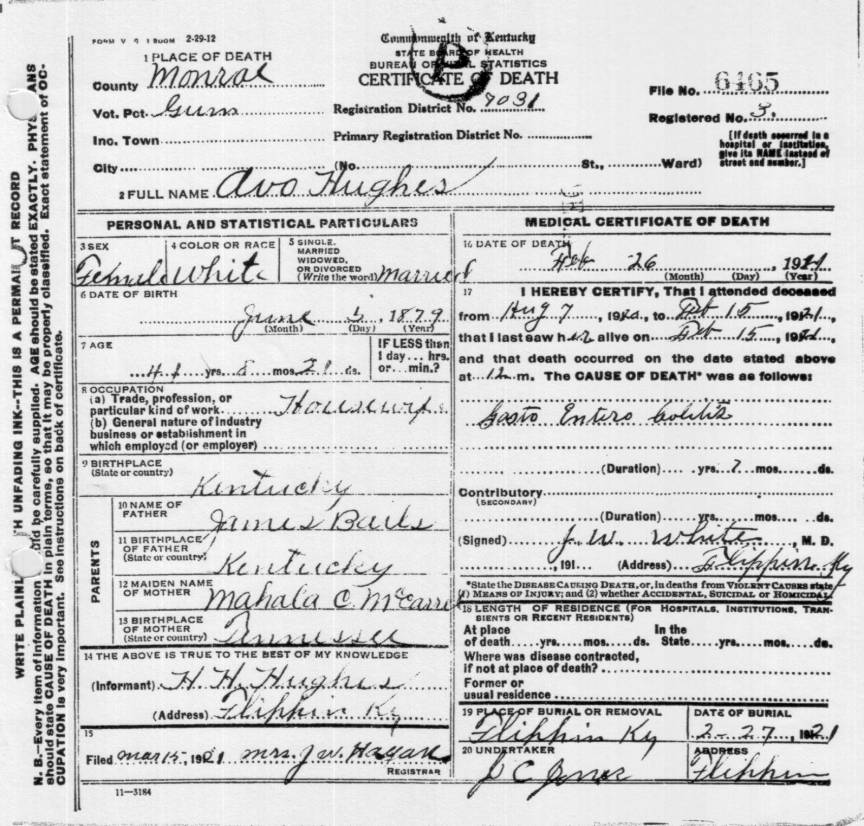 FORM V 2-29-12
Commonwealth of Kentucky
STATE BOARD OF HEALTH
BUREAU OF VITAL STATISTICS
CERTIFICATE OF DEATH
1 PLACE OF DEATH
County Monroe
Vot. Pct. Gum
Inc. Town
City (No. St., Ward)
Registration District No. 9031
Primary Registration District No.
File No. 6465
Registered No. 3.
[If death occurred in a hospital or institution, give its NAME instead of street and number.]
2 FULL NAME Avo Hughes
PERSONAL AND STATISTICAL PARTICULARS
3 SEX Female
4 COLOR OR RACE White
5 SINGLE, MARRIED WIDOWED, OR DIVORCED (Write the word) Married
6 DATE OF BIRTH
June 5 1879
(Month) (Day) (Year)
7 AGE
41 yrs. 8 mos. 21 ds.
IF LESS than 1 day... hrs. or... min.?
8 OCCUPATION
(a) Trade, profession, or particular kind of work Housewife
(b) General nature of industry business or establishment in which employed (or employer)
9 BIRTHPLACE
(State or country) Kentucky
PARENTS
10 NAME OF FATHER James Bails
11 BIRTHPLACE OF FATHER (State or country) Kentucky
12 MAIDEN NAME OF MOTHER Mahala C.
13 BIRTHPLACE OF MOTHER (State or country) Tennessee
14 THE ABOVE IS TRUE TO THE BEST OF MY KNOWLEDGE
(Informant) H. H. Hughes
(Address) Flippin Ky
15
Filed Mar 15, 1921 Mrs. J. W.
REGISTRAR
11-3184
MEDICAL CERTIFICATE OF DEATH
16 DATE OF DEATH
Feb 26, 1921
(Month) (Day) (Year)
17 I HEREBY CERTIFY, That I attended deceased
from Aug 7, 1920, to Feb 15, 1921,
that I last saw her alive on Feb 15, 1921,
and that death occurred on the date stated above
at 12 m. The CAUSE OF DEATH* was as follows:
Gasto Entero Colitis
(Duration) yrs. 7 mos. ds.
Contributory
(SECONDARY)
(Duration) yrs. mos. ds.
(Signed) J. W. White, M. D.
, 191 (Address) Flippin Ky
*State the DISEASE CAUSING DEATH, or, in deaths from VIOLENT CAUSES state
(1) MEANS OF INJURY; and (2) whether ACCIDENTAL, SUICIDAL OR HOMICIDAL
18 LENGTH OF RESIDENCE (FOR HOSPITALS, INSTITUTIONS, TRANSIENTS OR RECENT RESIDENTS)
At place of death yrs. mos. ds. In the State yrs. mos. ds.
Where was disease contracted, if not at place of death?
Former or usual residence
19 PLACE OF BURIAL OR REMOVAL Flippin Ky
DATE OF BURIAL 2-27, 1921
20 UNDERTAKER J C Jones
ADDRESS Flippin
WRITE PLAINLY WITH UNFADING INK--THIS IS A PERMANENT RECORD
N. B.--Every item of information should be carefully supplied. AGE should be stated EXACTLY. PHYSICIANS
should state CAUSE OF DEATH in plain terms, so that it may be properly classified. Exact statement of OC-
CUPATION is very important. See instructions on back of certificate.